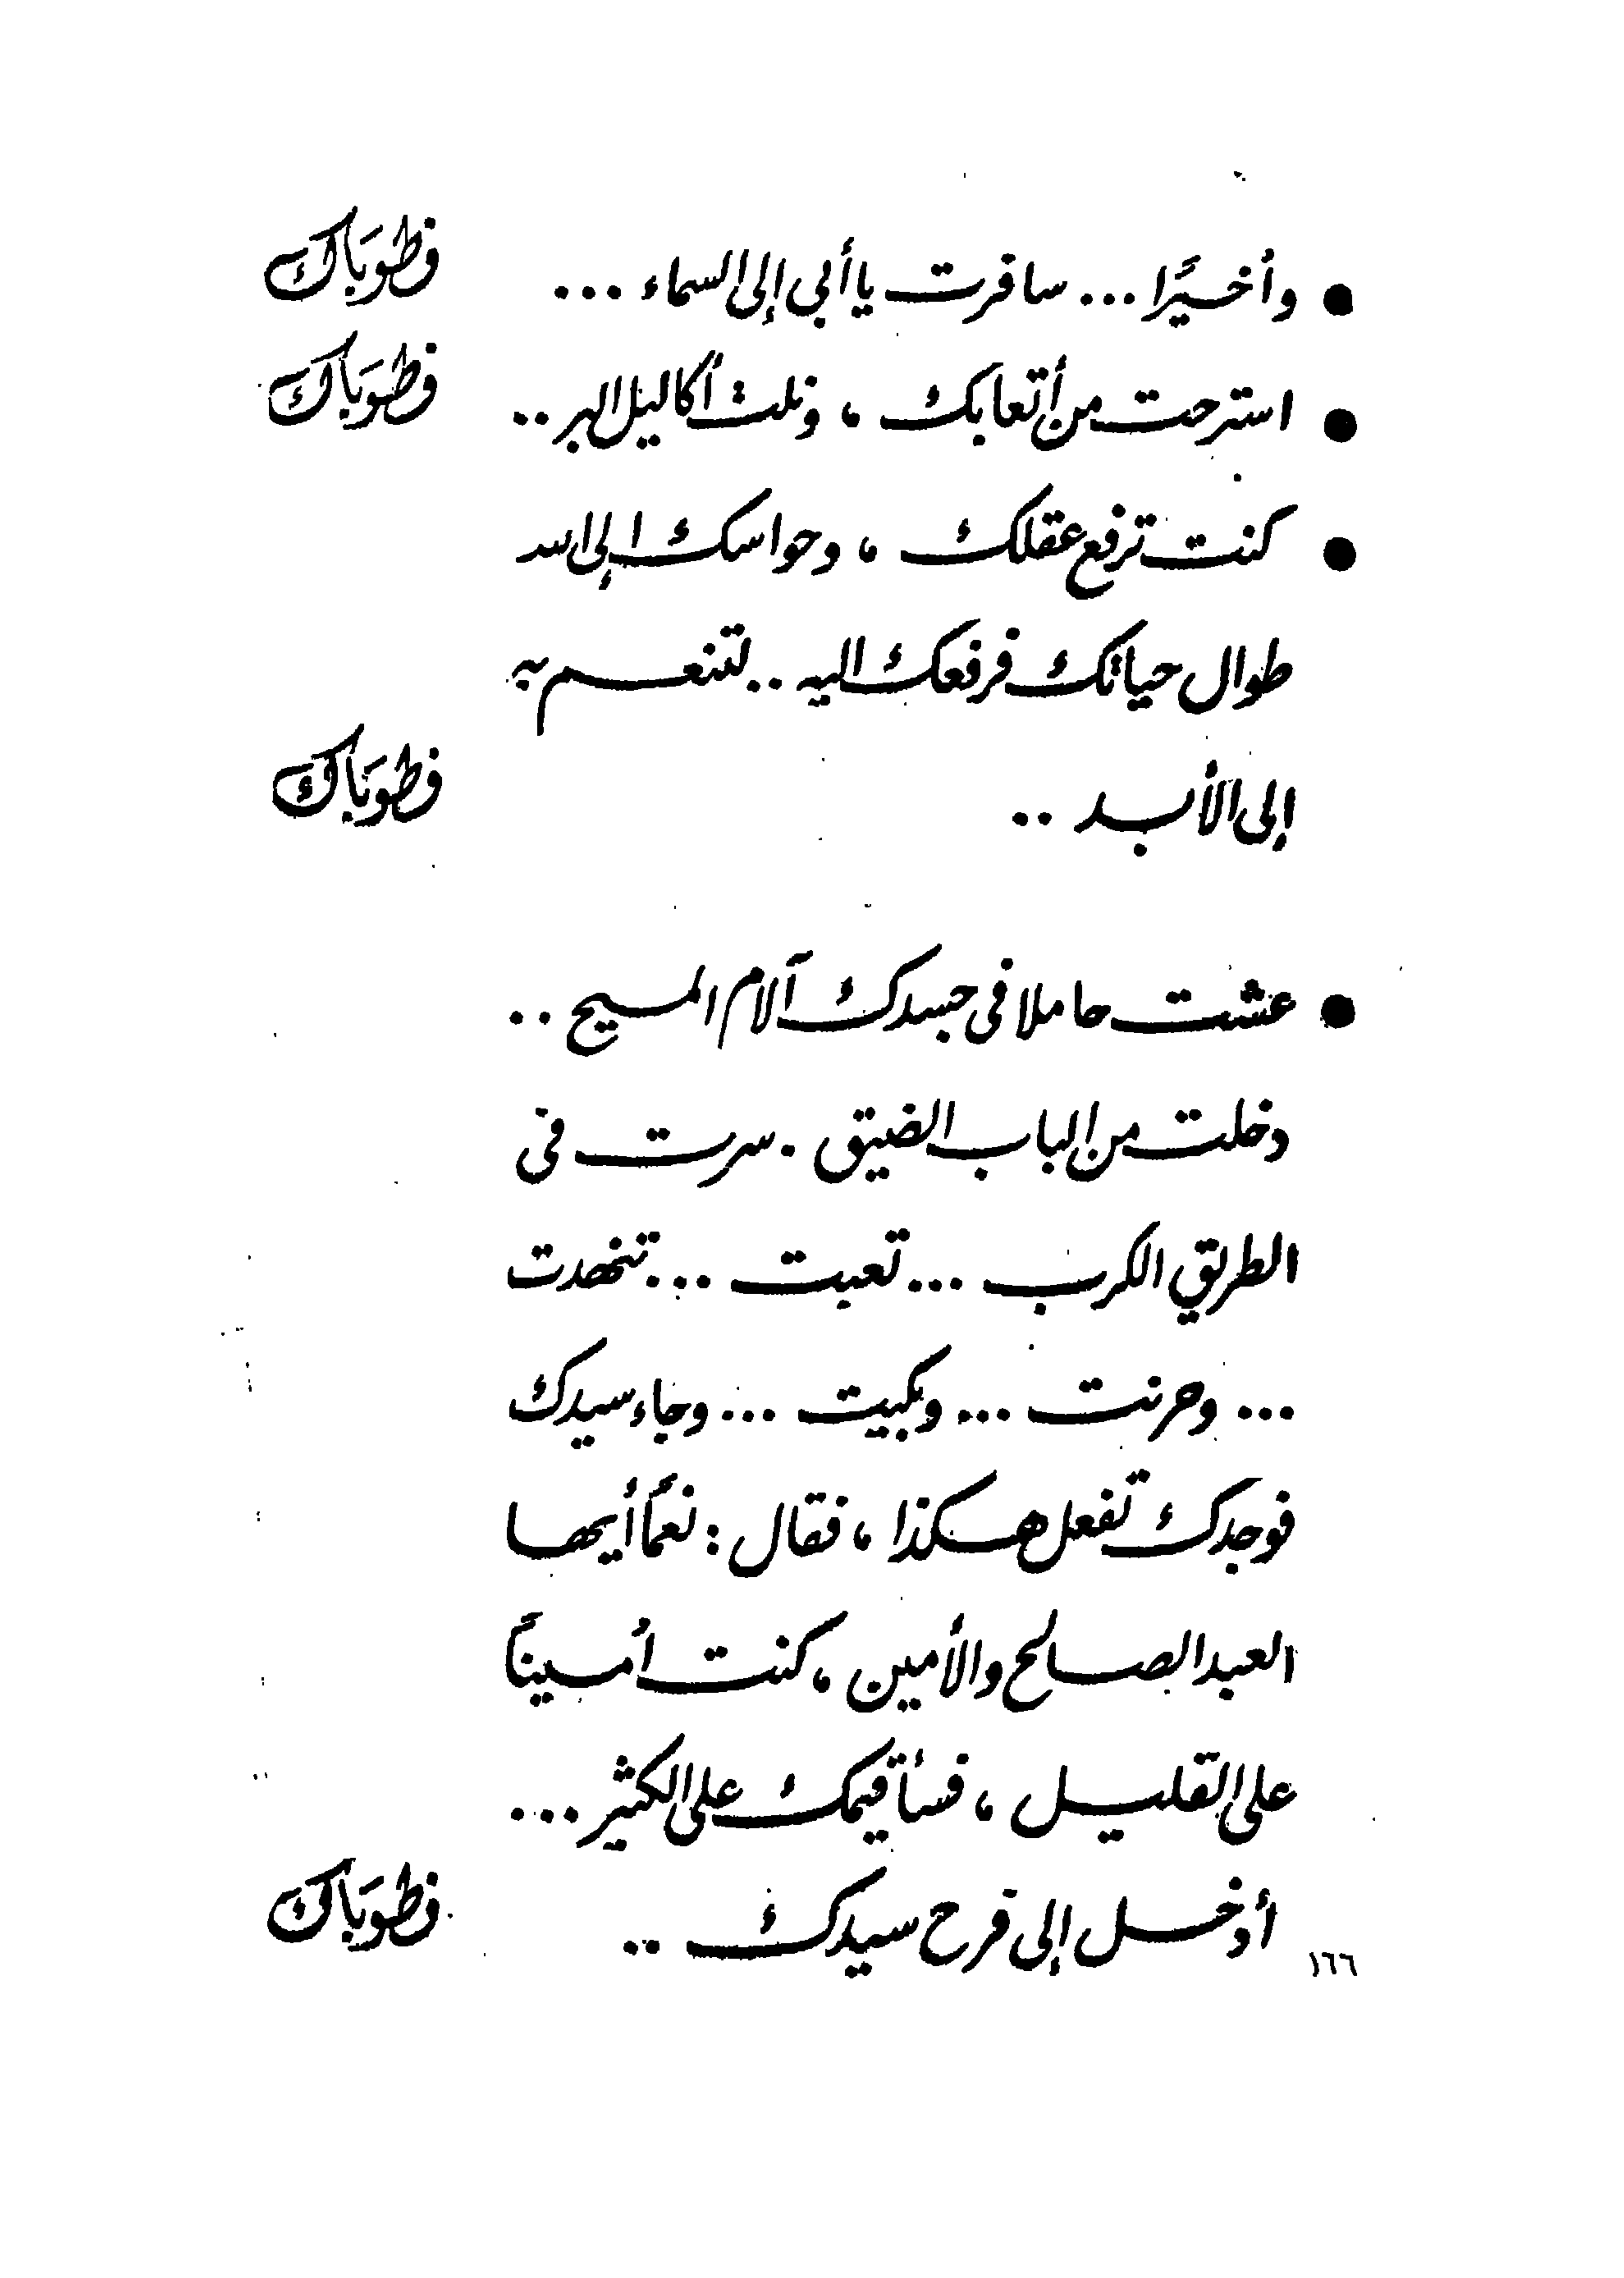 ● وأخيرًا ... سافرت يا أبى إلى السماء ... فطوبَاك
● استرحت من أتعابك ، ونلت أكاليل البر .. فطوبَاك
● كنت ترفع عقلك ، وحواسك إلى الله
طوال حياتك فرفعك اليه .. لتنعم به
إلى الأبد .. فطوبَاك
● عشت حاملا فى جسدك آلام المسيح ..
دخلت من الباب الضيق . سرت فى
الطريق الكرب ... تعبت ... تنهدت
... وحزنت ... وبكيت ... وجاء سيدك
فوجدك تفعل هكذا ، فقال : نعمًا أيها
العبد الصالح والأمين ، كنت أمينًا
على القليل ، فسأقيمك على الكثير ...
أدخل إلى فرح سيدك .. فطوبَاك
١٦٦